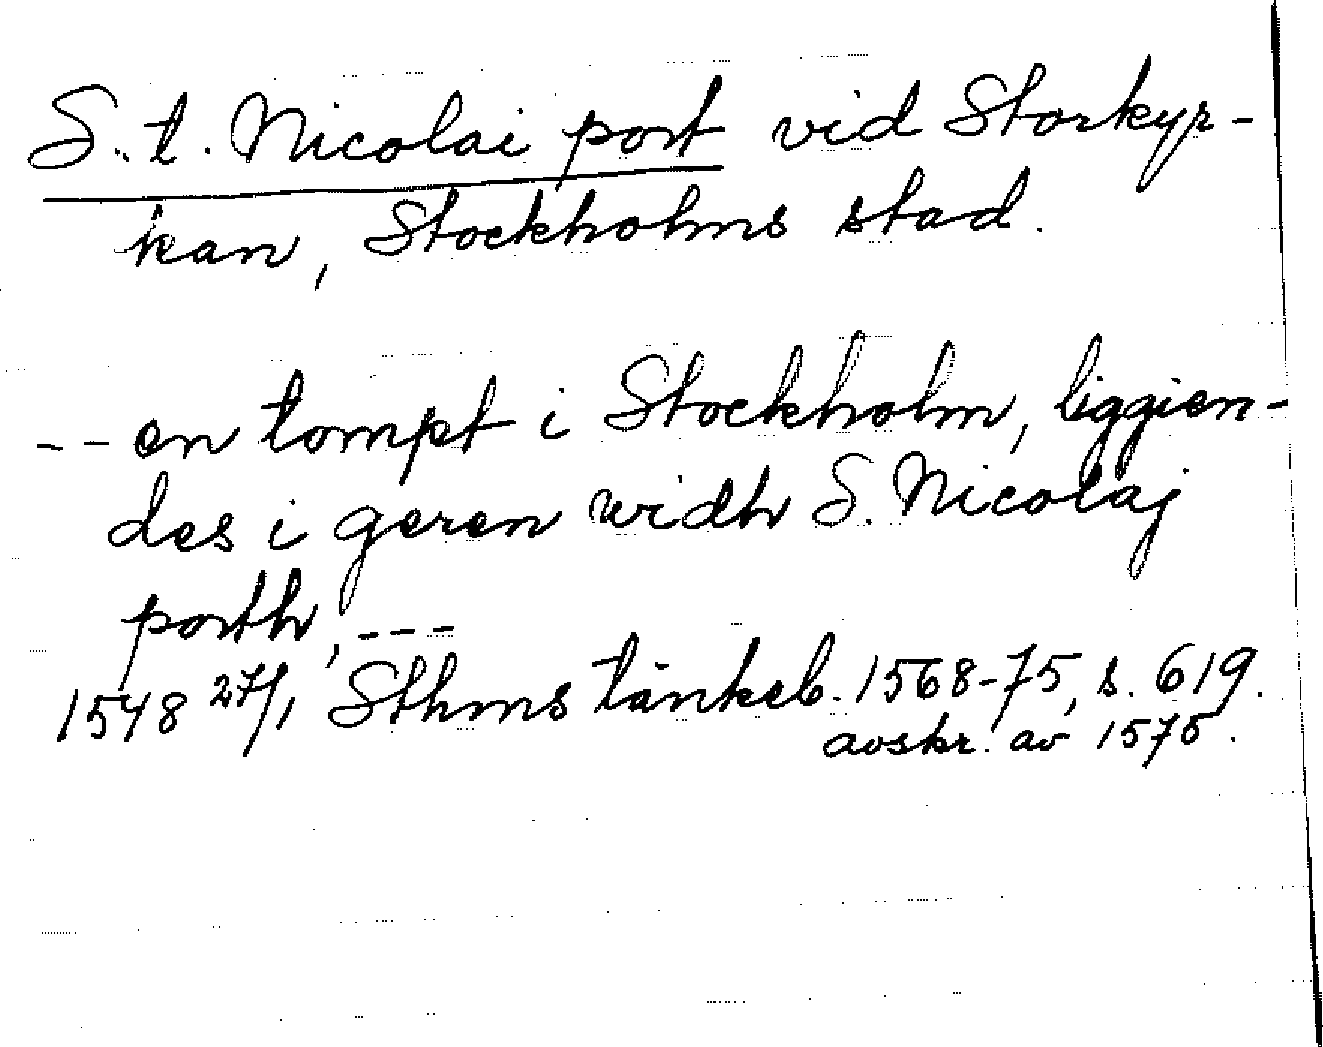 S.t. Nicolai port vid Storkyr-
kan, Stockholms stad.
-- en tompt i Stockholm, liggien-
des i geren widh S. Nicolaj
porth, ---
1548 27/1 Sthms tänkeb. 1568-75, s. 619.
avskr. av 1575.